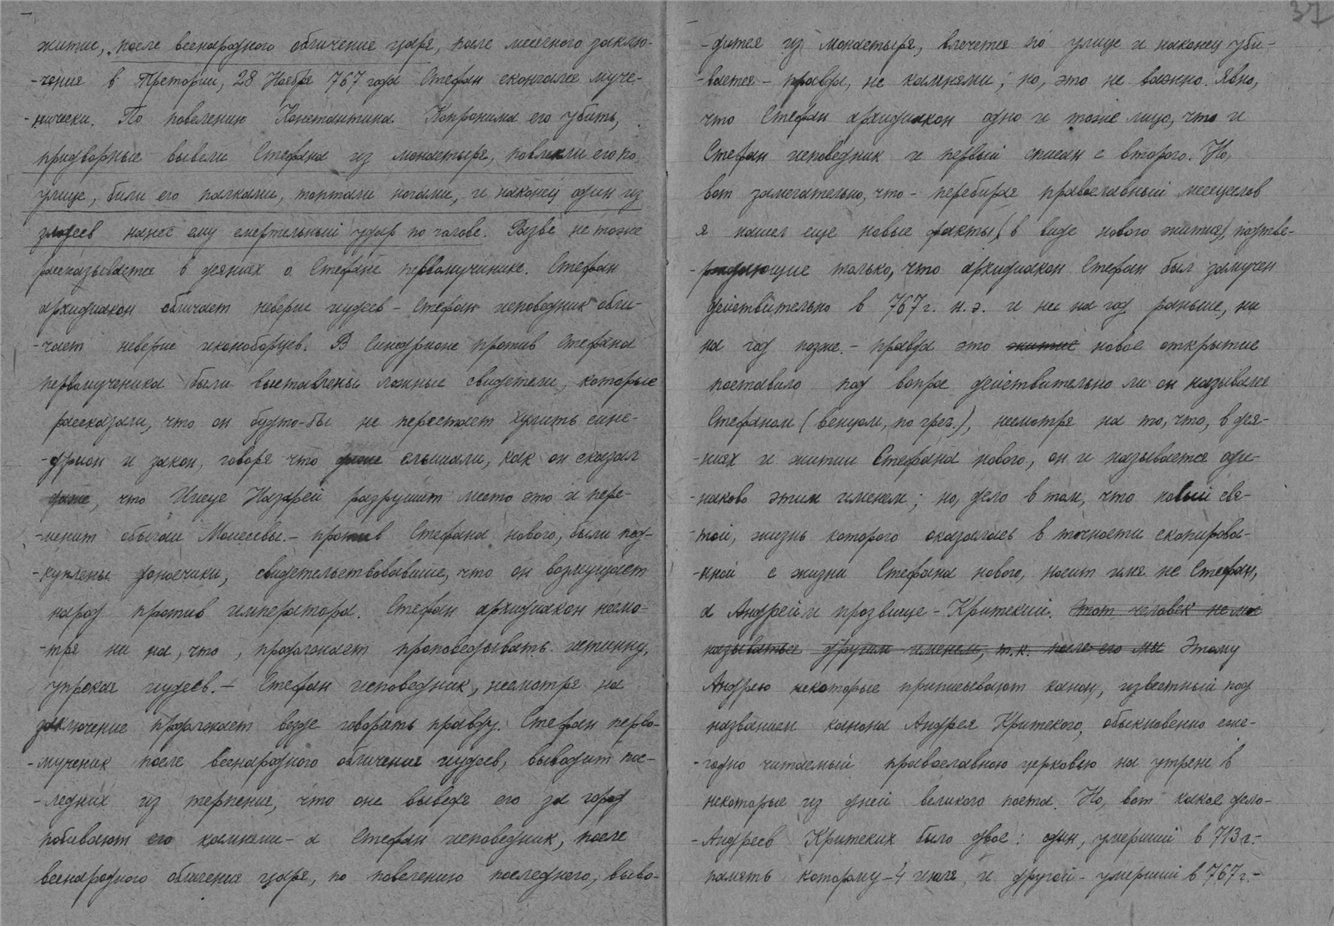 житие, после всенародного обличение царя, после месячного заклю-
-чения в Претории, 28 Ноября 767 года Стефан скончался муче-
-нически. По повелению Константина Копронима его убить,
придворные вывели Стефана из монастыря, повлекли его по
улице, били его палками, топтали ногами, и наконец один из
злодеев нанес ему смертельный удар по голове. Разве не тоже
рассказывается в деяниях о Стефане первомученике. Стефан
архидиакон обличает неверие иудеев - Стефан исповедник обли-
-чает неверие иконоборцев. В Синедрионе против Стефана
первомученика были выставлены ложные свидетели, которые
рассказали, что он будто-бы не перестает хулить сине-
-дрион и закон, говоря что слышали, как он сказал
что Иисус Назарей разрушит место это и пере-
-менит обычаи Моисеевы. - против Стефана нового, были под-
-куплены доносчики, свидетельствовавшие, что он возмущает
народ против императора. Стефан архидиакон несмо-
-тря ни на, что, продолжает проповедывать истинну,
упрекая иудеев. - Стефан исповедник, несмотря на
заключение продолжает везде говорить правду. Стефан перво-
-мученик после всенародного обличения иудеев, выводит пос-
-ледних из терпение, что оне выведя его за город
побивают его камнями - а Стефан исповедник, после
всенародного обличения царя, по повелению последнего, выво-
37
-дится из монастыря, влечется по улице и наконец уби-
-вается - правда, не камнями; но, это не важно. Явно,
что Стефан архидиакон одно и тоже лицо, что и
Стефан исповедник и первый списан с второго. Но,
вот замечательно, что - перебирая православный месяцеслов
я нашел еще новые факты (в виде нового жития), подтве-
-рждающие только, что архидиакон Стефан был замучен
действительно в 767 г. н. э. и ни на год раньше, ни
на год позже. - правда это житие новое открытие
поставило под вопрос действительно ли он назывался
Стефаном (венцом, по греч.), несмотря на то, что, в дея-
-ниях и житии Стефана нового, он и называется оди-
-наково этим именем; но, дело в том, что новый свя-
-той, жизнь которого оказалась в точности скопирова-
-нной с жизни Стефана нового, носит имя не Стефан,
а Андрей и прозвище - Критский. Этот человек не мог
называться другим именем, т.к. после его мы Этому
Андрею некоторые приписывают канон, известный под
названием канона Андрея Критского, обыкновенно еже-
-годно читаемый православною церковью на утрене в
некоторые из дней великого поста. Но, вот какое дело -
-Андреев Критских было двое: один, умерший в 713 г. -
память которому - 4 июля, и другой - умерший в 767 г. -